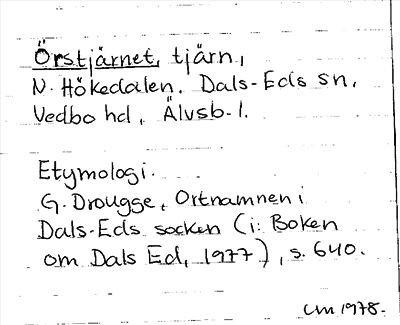 Örstjärnet, tjärn,
N. Hökedalen. Dals-Eds sn.
Vedbo hd, Älvsb. l.
Etymologi.
G. Drougge, Ortnamnen i
Dals-Eds socken (i: Boken
om Dals Ed, 1977), s. 640.
LM 1978.